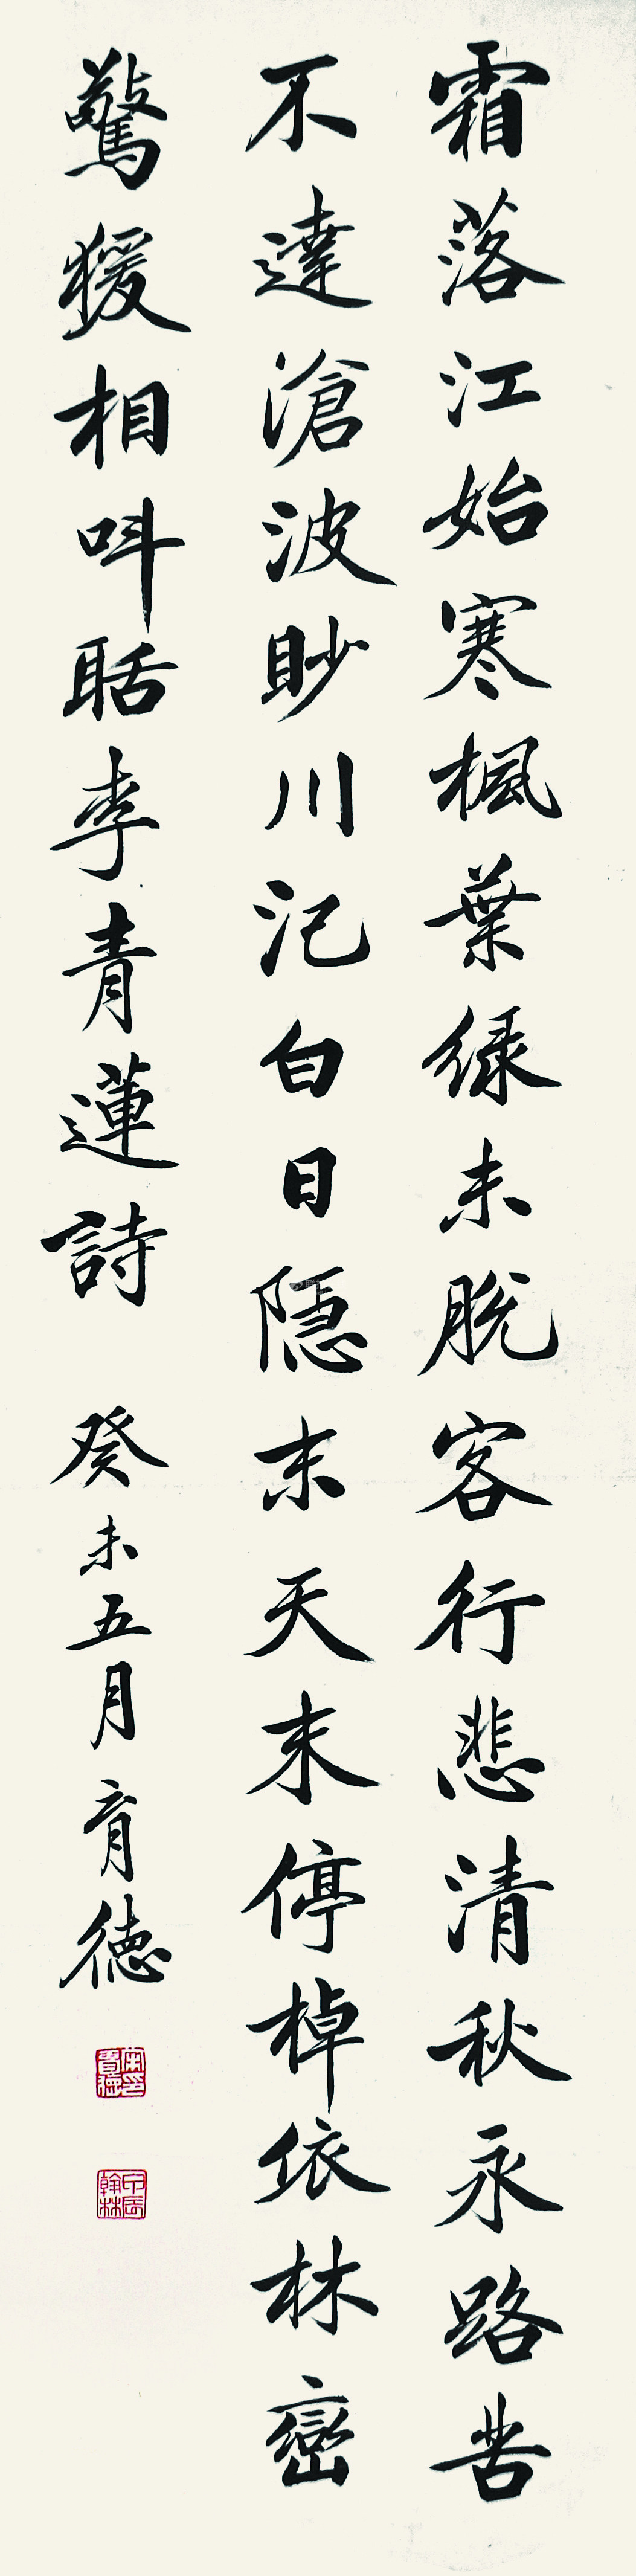 霜落江始寒楓葉緑未脫客行悲清秋永路苦
不達滄波眇川汜白日隱末天末停棹依林巒
驚猨相叫聒李青蓮詩 癸未五月 育德